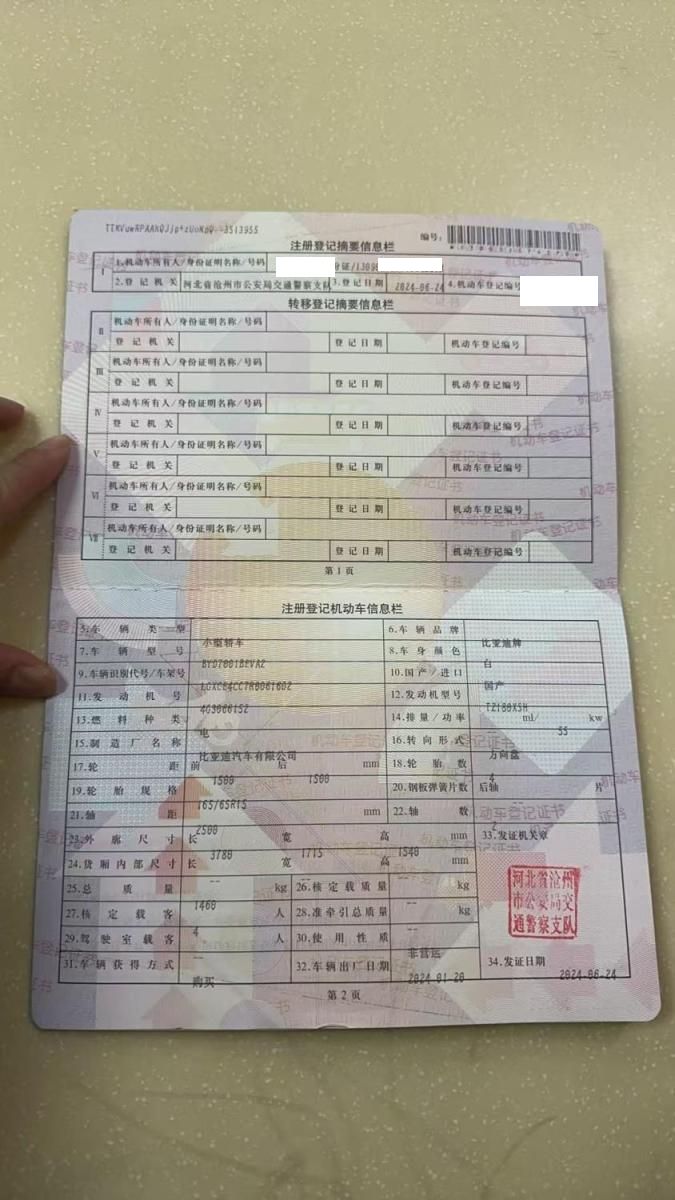 TTKVuwRPAAKQJjp*zUoKpQ--3513955
编号:
注册登记摘要信息栏
I 1.机动车所有人/身份证明名称/号码 份证/1309
2.登记机关 河北省沧州市公安局交通警察支队 3.登记日期 2024-06-24 4.机动车登记编号
转移登记摘要信息栏
II 机动车所有人/身份证明名称/号码
登记机关 登记日期 机动车登记编号
III 机动车所有人/身份证明名称/号码
登记机关 登记日期 机动车登记编号
IV 机动车所有人/身份证明名称/号码
登记机关 登记日期 机动车登记编号
V 机动车所有人/身份证明名称/号码
登记机关 登记日期 机动车登记编号
VI 机动车所有人/身份证明名称/号码
登记机关 登记日期 机动车登记编号
VII 机动车所有人/身份证明名称/号码
登记机关 登记日期 机动车登记编号
第1页
注册登记机动车信息栏
5.车辆类型 小型轿车 6.车辆品牌 比亚迪牌
7.车辆型号 BYD7001BEVA2 8.车身颜色 白
9.车辆识别代号/车架号 LGXCE4CC7R0061602 10.国产/进口 国产
11.发动机号 4G3066152 12.发动机型号 TZ180XSH
13.燃料种类 电 14.排量/功率 ml/ 55 kw
15.制造厂名称 比亚迪汽车有限公司 16.转向形式 方向盘
17.轮距 前 1500 后 1500 mm 18.轮胎数 4
19.轮胎规格 165/65R15 20.钢板弹簧片数 后轴 -- 片
21.轴距 2500 mm 22.轴数 2
23.外廓尺寸 长 3780 宽 1715 高 1540 mm 33.发证机关章
24.货厢内部尺寸 长 -- 宽 -- 高 -- mm
25.总质量 1460 kg 26.核定载质量 -- kg
河北省沧州
市公安局交
通警察支队
27.核定载客 4 人 28.准牵引总质量 -- kg
29.驾驶室载客 -- 人 30.使用性质 非营运
31.车辆获得方式 购买 32.车辆出厂日期 2024-01-20 34.发证日期 2024-06-24
第2页